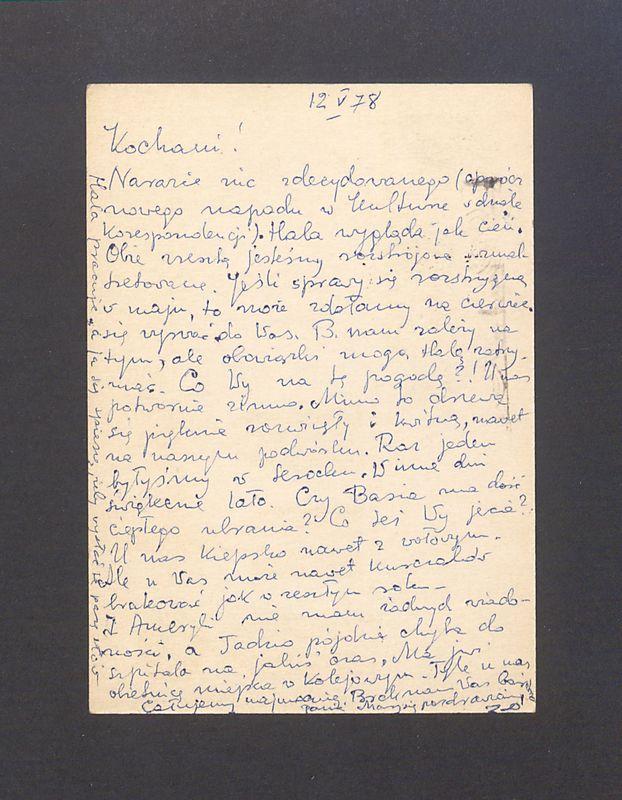 12 V 78
Kochani!
Narazie nic zdecydowanego (oprócz
nowego napadu w Kulturze w dziale
Korespondencji). Hala wygląda jak cień.
Obie zresztą jesteśmy rozstrojone i zmal-
tretowane. Jeśli sprawy się rozstrzygną
w maju, to może zdołamy na czerwiec
się wyrwać do Was. B. nam zależy na
tym, ale obowiązki mogą Halę zatrzy-
mać. Co Wy na tę pogodę?! U nas
potwornie zimno. Mimo to drzewa
się pięknie rozwinęły i kwitną, nawet
na naszym podwórku. Raz jeden
byłyśmy w Serocku. W inne dni
świąteczne lało. Czy Basia ma dość
ciepłego ubrania? Co też Wy jecie?
U nas kiepsko nawet z wołowym.
Ale u Was może nawet kurczaków
brakować jak w zeszłym roku
Z Ameryki nie mam żadnych wiado-
mości, a Tadzio pójdzie chyba do
szpitala na jakiś czas. Ma już
obietnicę miejsca w Kolejowym. Tyle u nas
Całujemy najmocniej. Brak nam Was
Panią Marysię pozdrawiamy
Hala pracuje a ja się spieszę, żeby wysłać te parę słów